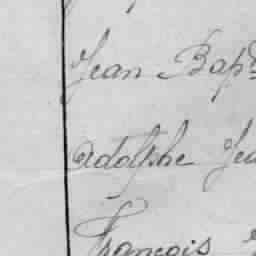 Jean Bapt
Adolphe Jea
François